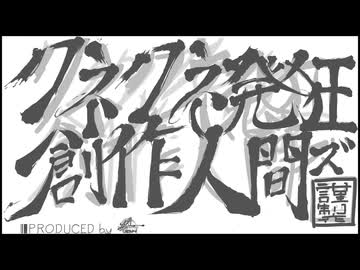 クネクネ発狂
創作人間ズ
謹製
PRODUCED by